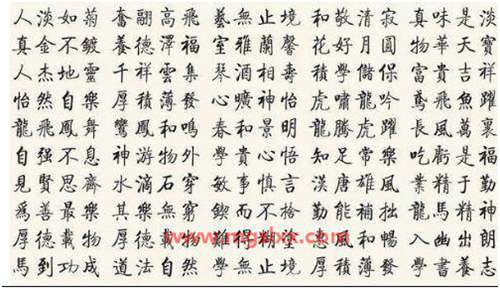 人淡如菊 奮翮高飛 藝無止境 和敬清寂 真味是淡
真金不鍍 養德澤福 室雅蘭馨 花好月圓 物華天寶
人杰地靈 千祥雲集 琴酒相壽 積學儲保 富貴吉祥
怡然自樂 厚積薄發 心曠神怡 虎嘯龍吟 鳶飛魚躍
龍飛鳳舞 鸞鳳和鳴 春和景明 龍騰虎躍 長風萬裏
自强不息 神游物外 學貴心悟 知足常樂 吃虧是福
見賢思齊 水滴石穿 敏事慎言 漢唐雄風 業精于勤
為善最樂 其樂無窮 鍥而不捨 勤能補拙 龍馬精神
厚德載物 難得糊塗 惠風和暢 入幽出朗
馬到功成 道法自然 學無止境 厚積薄發 學書養志